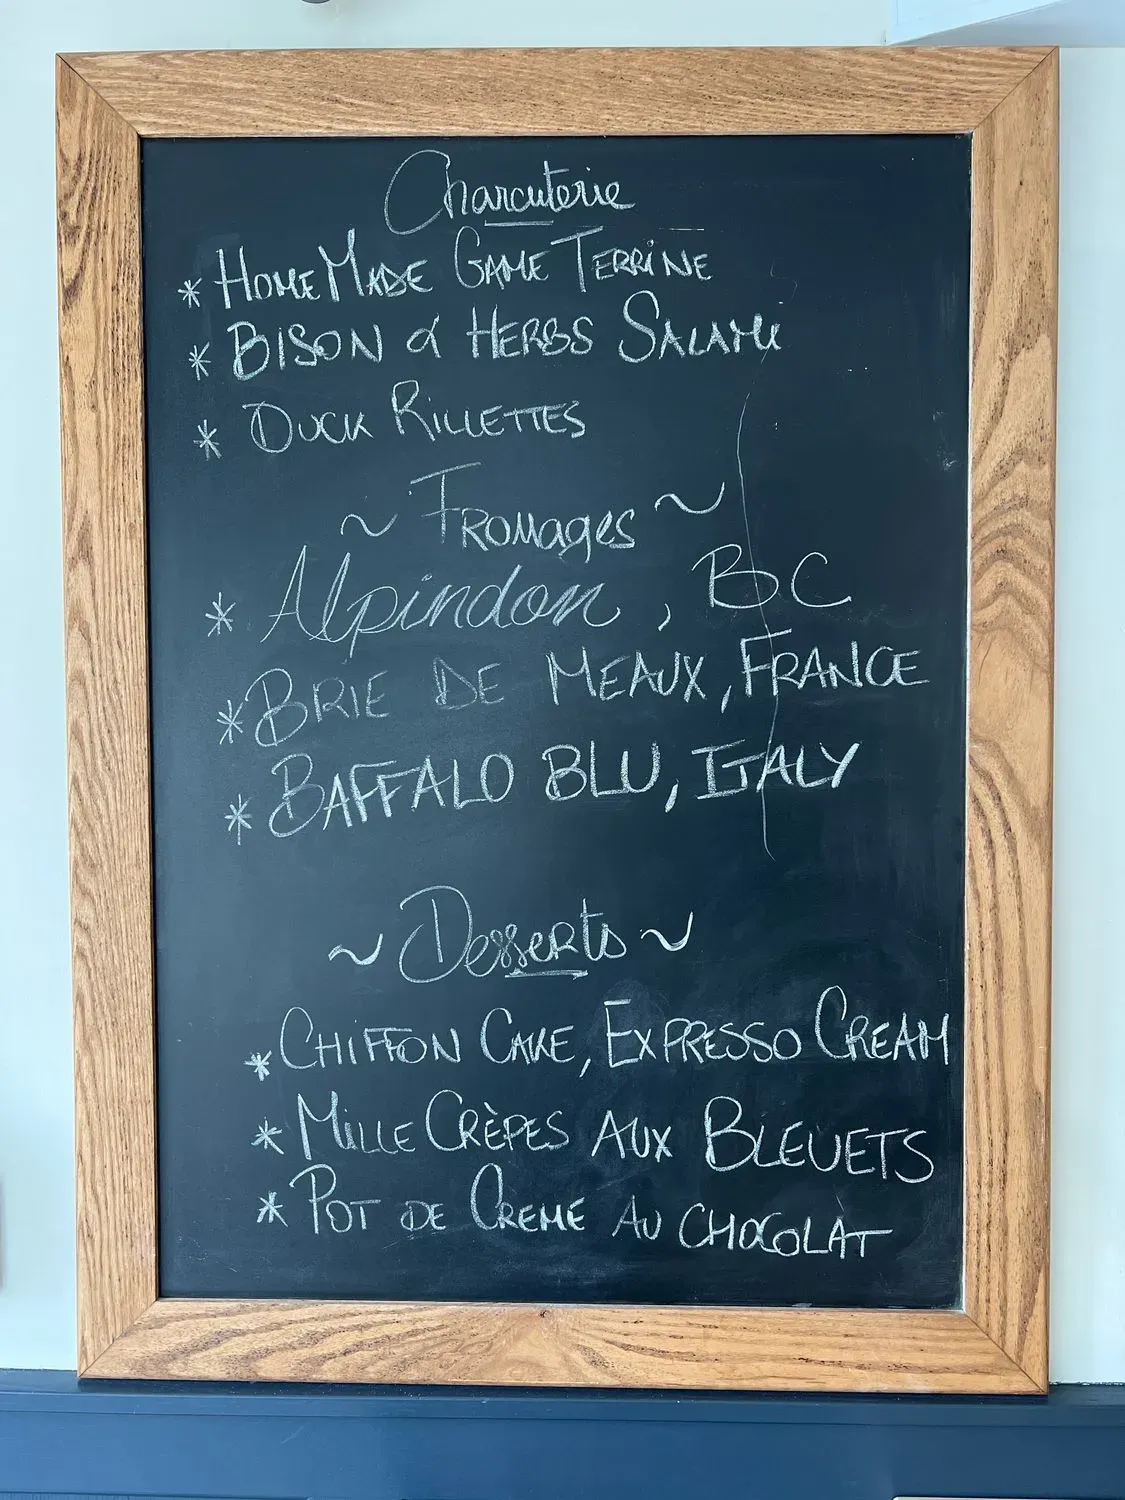 Charcuterie
* HomeMade Game Terrine
* Bison & Herbs Salami
* Duck Rillettes
~ Fromages ~
* Alpindon, BC
* Brie de Meaux, France
* Baffalo Blu, Italy
~ Desserts ~
* Chiffon Cake, Expresso Cream
* Mille Crèpes aux Bleuets
* Pot de Creme au chocolat